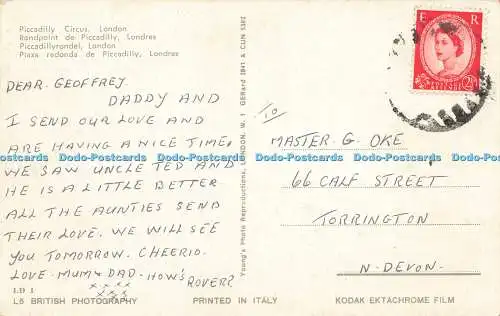 Piccadilly Circus, London
Rondpoint de Piccadilly, Londres
Piccadillyrondel, London
Plaza redonda de Piccadilly, Londres
DEAR GEOFFREY.
DADDY AND
I SEND OUR LOVE AND
ARE HAVING A NICE TIME.
WE SAW UNCLE TED AND
HE IS A LITTLE BETTER
ALL THE AUNTIES SEND
THEIR LOVE. WE WILL SEE
YOU TOMORROW. CHEERIO.
LOVE. MUM & DAD. HOW'S ROVER?
xxxx
xxx
LD 1
L6 BRITISH PHOTOGRAPHY
PRINTED IN ITALY
KODAK EKTACHROME FILM
Young's Photo Reproductions, LONDON, W. 1 GERrard 1841 & CUN 5382
TO
MASTER. G. OKE
66 CALF STREET
TORRINGTON
N. DEVON.
E R
2½D
Dodo-Postcards Dodo-Postcards Dodo-Postcards Dodo-Postcards Dodo-Postcards Dodo-Postcards